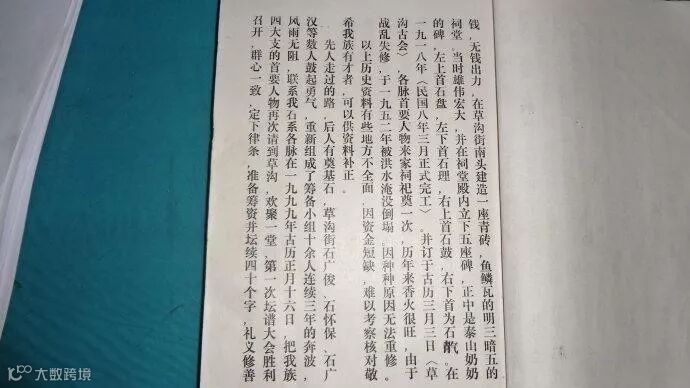 钱，无钱出力，在草沟街南头建造一座青砖，鱼鳞瓦的明三暗五的
祠堂。当时雄伟宏大，并在祠堂殿内立下五座碑，正中是泰山奶奶
的碑，左上首石盘，左下首石理，右上首石鼓，右下首为石 。在
一九一八年（民国八年三月正式完工）。并订于古历三月三日（草
沟古会）各脉首要人物来家祠祀奠一次，历年来香火很旺，由于
战乱失修，于一九五二年被洪水淹没倒塌。因种种原因无法重修。
以上历史资料有些地方不全面，因资金短缺，难以考察核对敬
希我族有才者，可以供资料补正。
先人走过的路，后人有奠基石，草沟街石广俊、石怀保、石广
汉等数人鼓起勇气，重新组成了筹备小组十余人连续三年的奔波，
风雨无阻，联系我石系各脉在一九九九年古历正月十六日，把我族
四大支的首要人物再次请到草沟，欢聚一堂，第一次坛谱大会胜利
召开，群心一致，定下律条，准备筹资并坛续四十个字，礼义修善
大数跨境